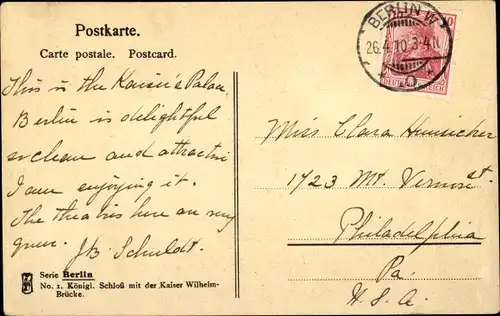 Postkarte.
Carte postale. Postcard.
This is the Kaiser's Palace
Berlin is delightful
so clean and attractive
I am enjoying it.
The theatres here are very
J.B. Schuldt.
Serie Berlin
No. 1. Königl. Schloß mit der Kaiser Wilhelm-
Brücke.
BERLIN W
26.4.10.3-4N
10
DEUTSCHES REICH
Miss Clara Hunsicker
1723 Mt. Vernon St
Philadelphia
Pa.
U.S.A.